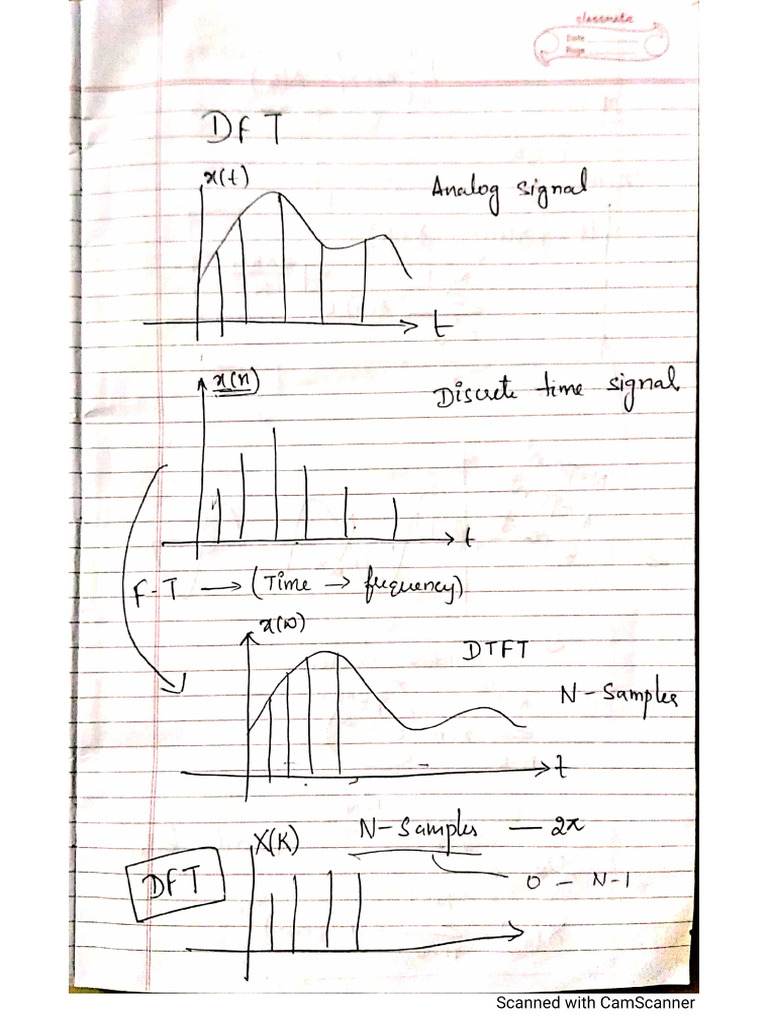 classmate
Date
Page
DFT
x(t)
Analog signal
t
x(n)
Discrete time signal
t
F-T → (Time → frequency)
x(ω)
DTFT
N-Samples
t
X(K)
N-Samples — 2π
DFT
0 - N-1
Scanned with CamScanner